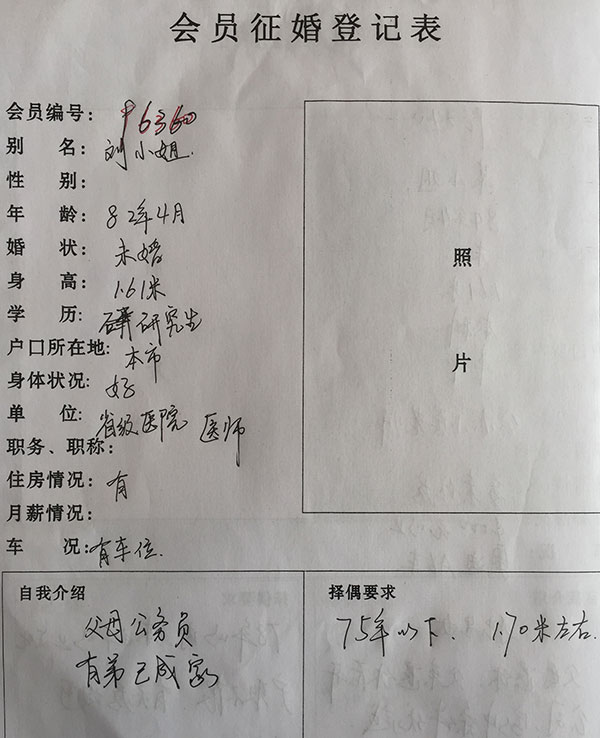 会员征婚登记表
会员编号: f6360
别 名: 刘小姐.
性 别:
年 龄: 82年4月
婚 状: 未婚
身 高: 1.61米
学 历: 研究生
户口所在地: 本市
身体状况: 好
单 位: 省级医院 医师
职务、职称:
住房情况: 有
月薪情况:
车 况: 有车位.
照
片
自我介绍
父母公务员
有弟已成家
择偶要求
75年以下. 1.70米左右.